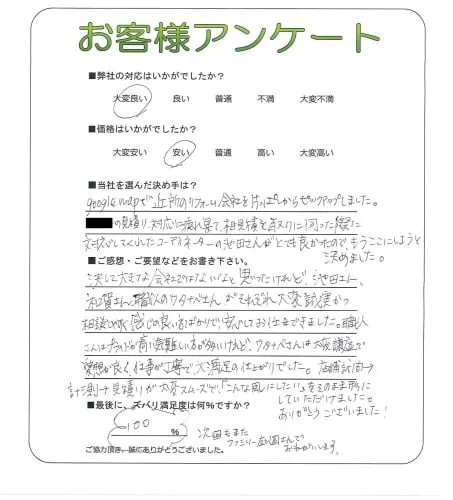 お客様アンケート
■弊社の対応はいかがでしたか？
大変良い 良い 普通 不満 大変不満
■価格はいかがでしたか？
大変安い 安い 普通 高い 大変高い
■当社を選んだ決め手は？
google mapで近所のリフォーム会社を片っぱしからピックアップしました。
の見積り、対応に疲れ果て、相見積を取りに伺った際に
対応してくれたコーディネーターの池田さんがとても良かったので、もうここにしようと
決めました。
■ご感想・ご要望などをお書き下さい。
決して大きな会社ではないなと思ったけれど、池田さん、
和賀さん、職人のワタナベさん、がそれぞれ大変誠実かつ
相談しやすく感じの良い方ばかりで安心してお任せできました。職人
さんはプライドが高く気難しい方が多いけれど、ワタナベさんは
愛想が良く、仕事が丁寧で大満足の仕上がりでした。店舗訪問→
計測→見積りが大変スムーズで、「こんな風にしたい」をそのまま形に
していただけました。
ありがとうございました！
■最後に、ズバリ満足度は何％ですか？
100 ％
次回もまた
ファミリー庭園さんで
お願いします。
ご協力頂き、誠にありがとうございました。